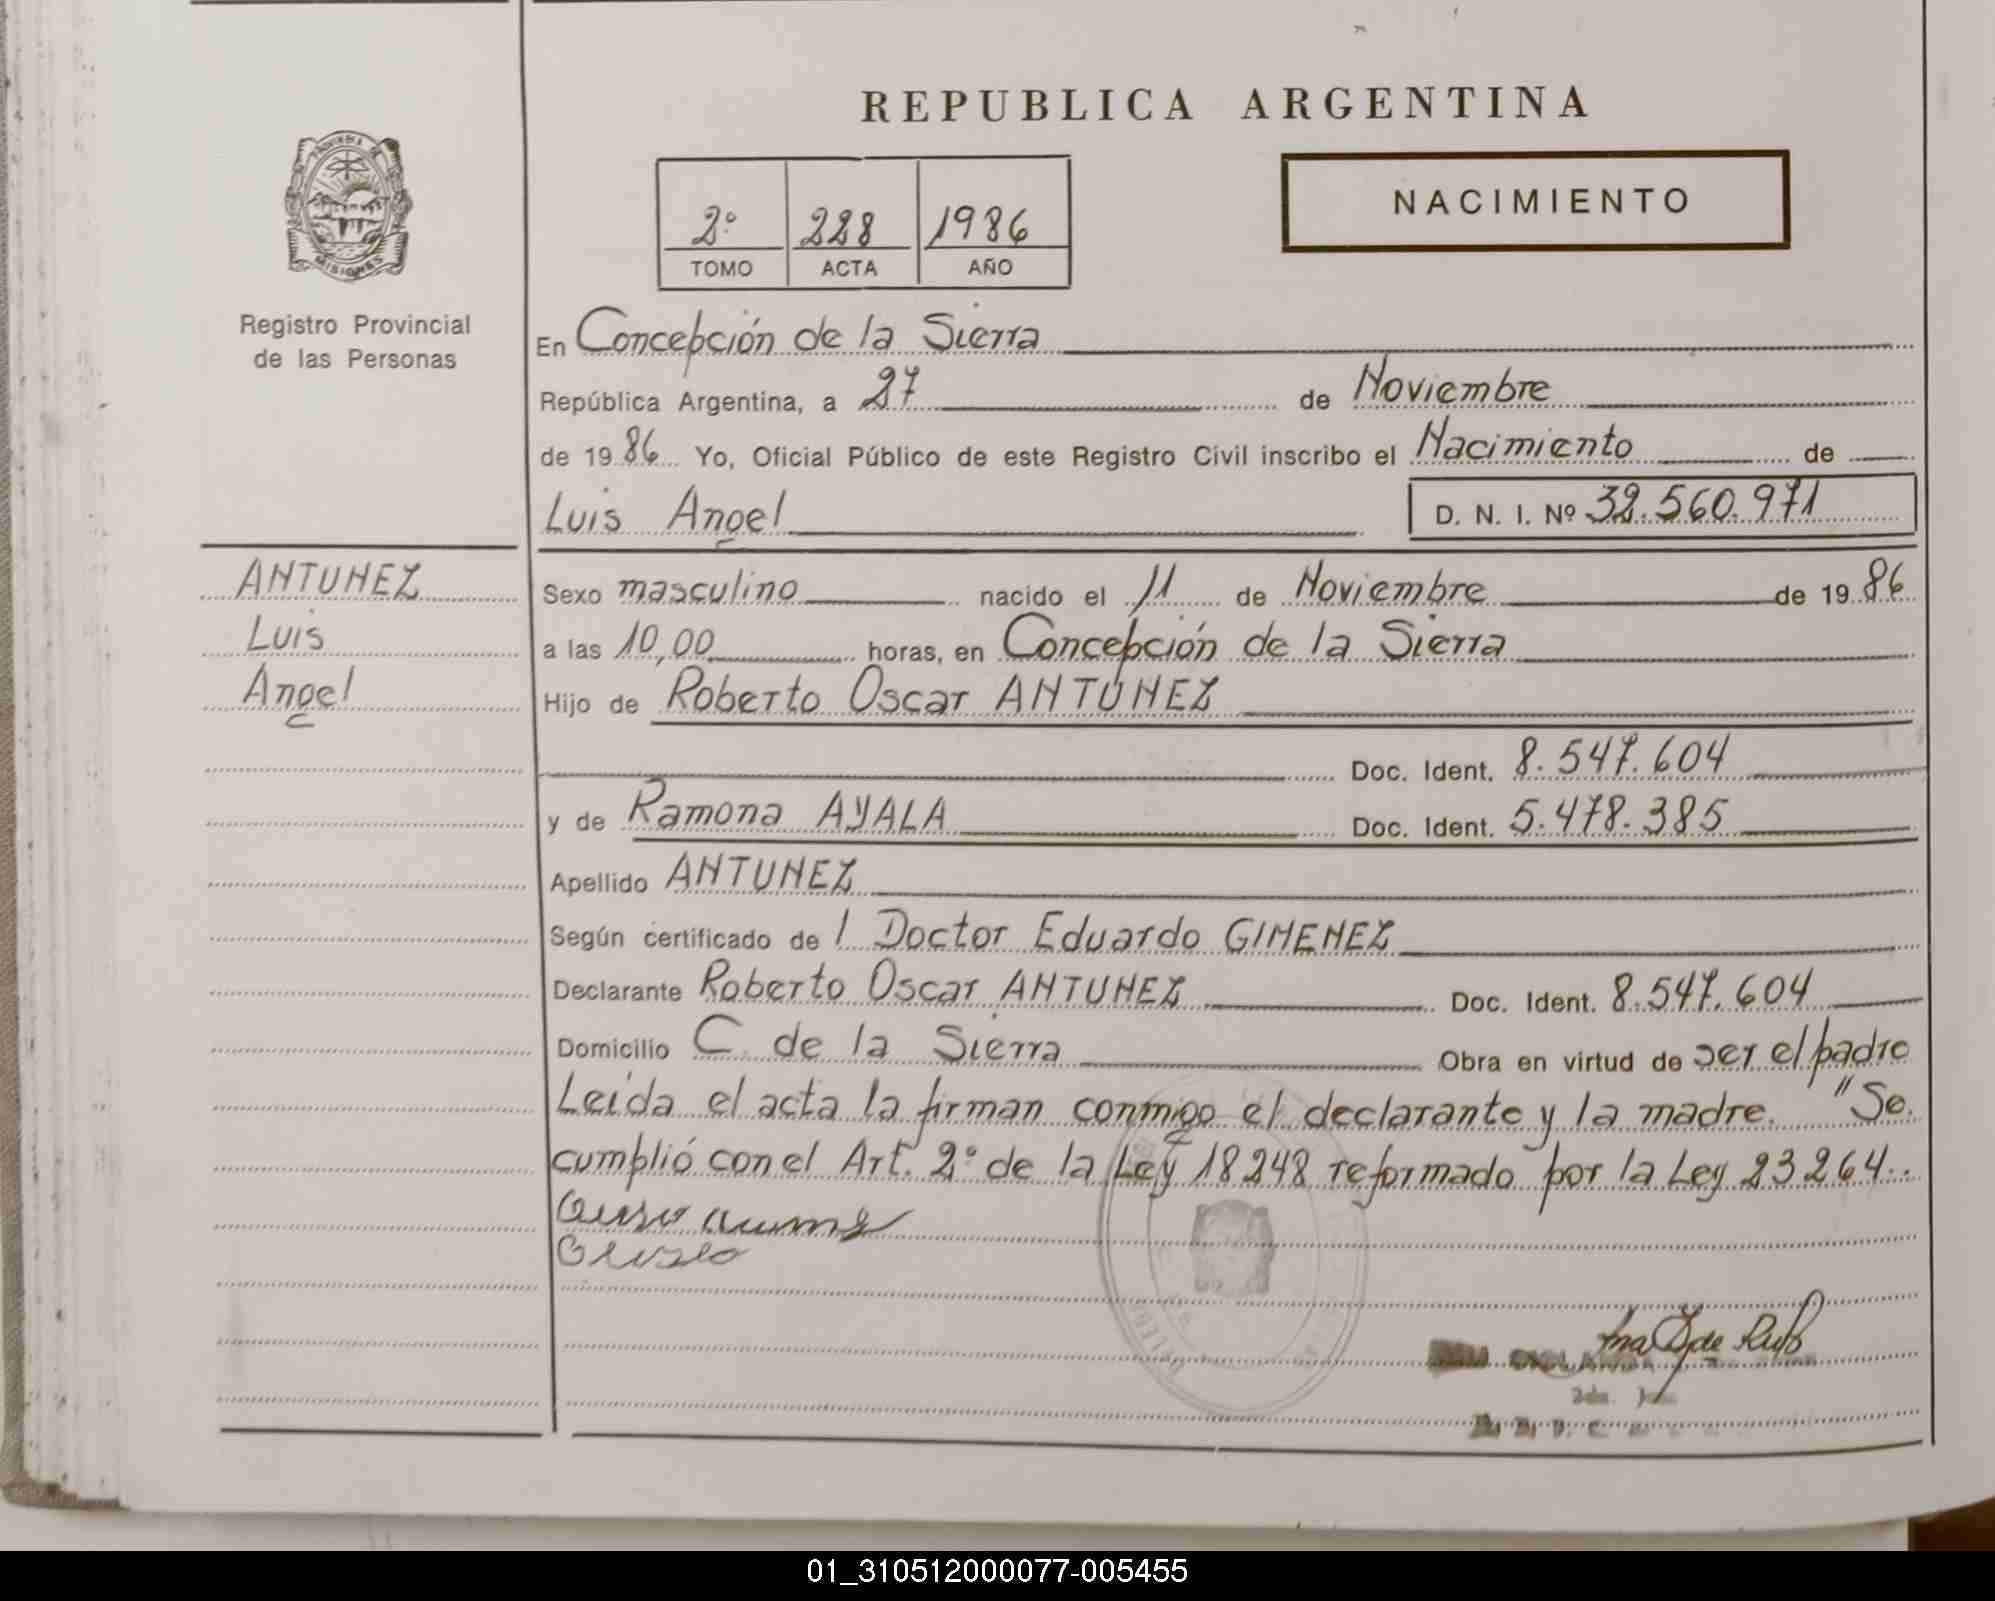 REPUBLICA ARGENTINA
NACIMIENTO
2º 228 1986
TOMO ACTA AÑO
PROVINCIA DE
MISIONES
Registro Provincial
de las Personas
En Concepción de la Sierra
República Argentina, a 27 de Noviembre
de 1986 Yo, Oficial Público de este Registro Civil inscribo el Nacimiento de
Luis Angel D. N. I. Nº 32.560.971
ANTUNEZ
Luis
Angel
Sexo masculino nacido el 11 de Noviembre de 1986
a las 10,00 horas, en Concepción de la Sierra
Hijo de Roberto Oscar ANTUNEZ
Doc. Ident. 8.547.604
y de Ramona AYALA Doc. Ident. 5.478.385
Apellido ANTUNEZ
Según certificado de l Doctor Eduardo GIMENEZ
Declarante Roberto Oscar ANTUNEZ Doc. Ident. 8.547.604
Domicilio C. de la Sierra Obra en virtud de ser el padre
Leída el acta la firman conmigo el declarante y la madre. "Se
cumplió con el Art. 2º de la Ley 18248 reformado por la Ley 23264..
01_310512000077-005455